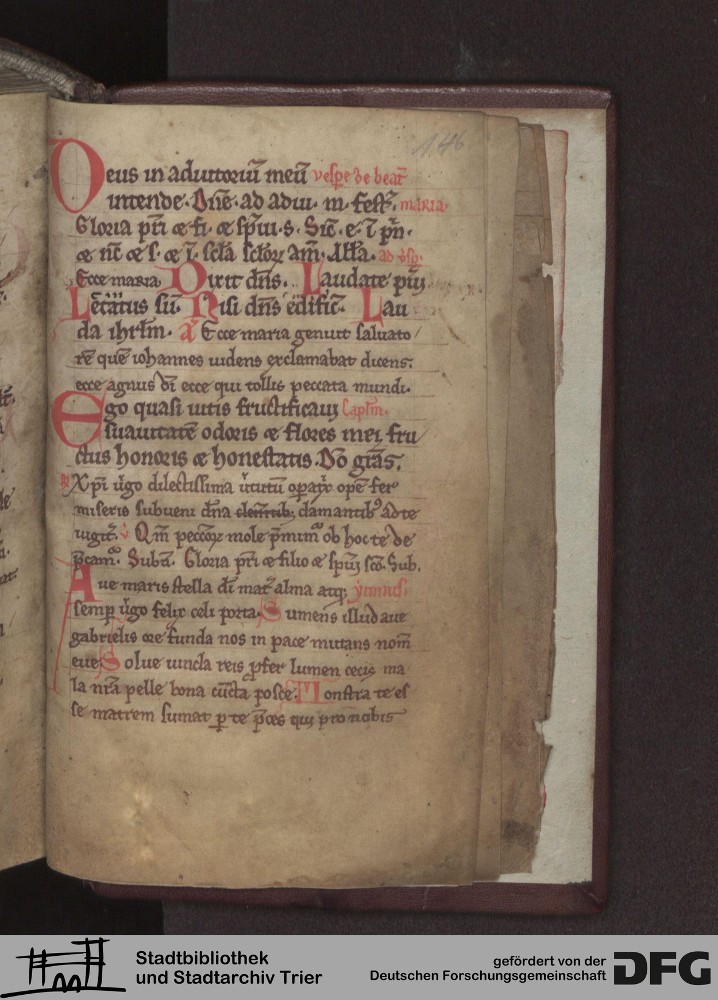 146
Deus in adiutoriū meū vespe de beat̄
intende. Dn̄e. ad adiu. m. fest̄. maria.
Gloria pr̄i ⁊ fi. ⁊ sp̄ui. s. Sic̄. e. ī pn̄.
⁊ nc̄ ⁊ s. ⁊ ī. scl̄a scl̄oꝝ am̄. All̄a. ad v̄sp̄.
Ecce maria Dixit dn̄s. Laudate pūi
Letatus sū. Nisi dn̄s edific̄. Lau
da ihrl̄m. a Ecce maria genuit saluato
rē quē iohannes uidens exclamabat dicens.
ecce agnus dī ecce qui tollis peccata mundi.
Ego quasi uitis fructificaui Capl̄m.
suauitatē odoris ⁊ flores mei fru
ctus honoris ⁊ honestatis. Dō grās.
R Xp̄i ūgo dilectissima ūtutū opatrix opē fer
miseris subueni dn̄a clamantibꝰ ad te
iugit̄. v Qm̄ peccoꝝ mole p̄mimur ob hoc te de
p̄cam̄. Subū. Gloria pr̄i ⁊ filio ⁊ sp̄ui sc̄o. Sub.
Aue maris stella dī mat̄ alma atq; ymnus.
semp ūgo felix celi porta. Sumens illud aue
gabrielis ore funda nos in pace mutans nom̄
eue Solue uincla reis ꝓfer lumen cecis ma
la nr̄a pelle bona cūcta posce. Monstra te es
se matrem sumat p te p̄ces qui pro nobis
Stadtbibliothek
und Stadtarchiv Trier
gefördert von der
Deutschen Forschungsgemeinschaft
DFG